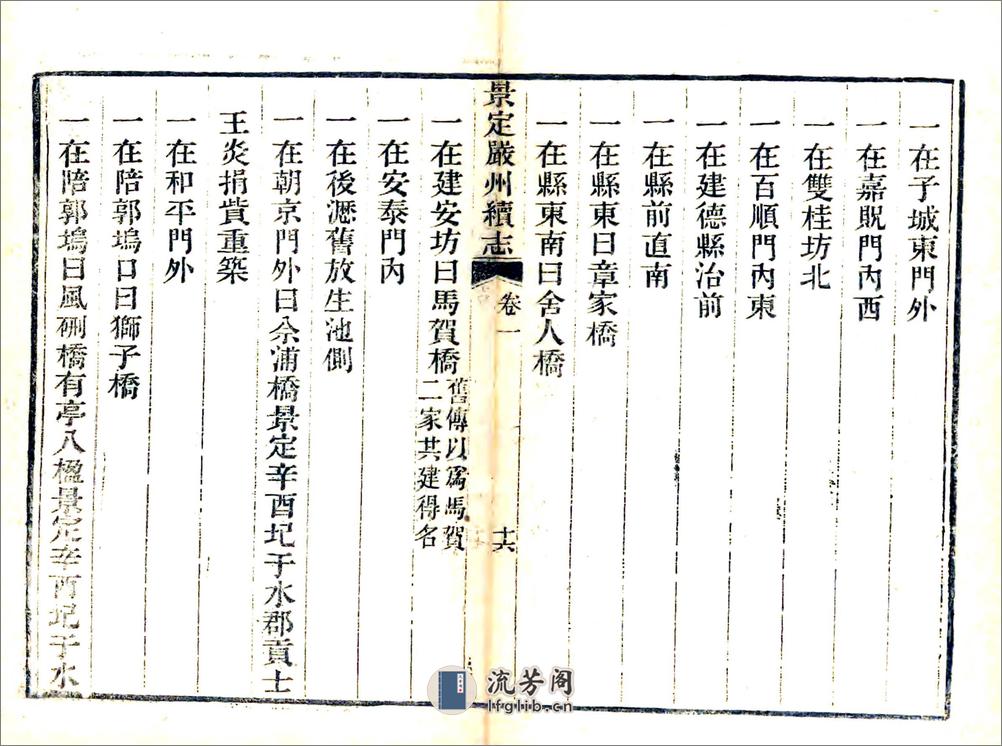 一在子城東門外
一在嘉貺門內西
一在雙桂坊北
一在百順門內東
一在建德縣治前
一在縣前直南
一在縣東曰章家橋
一在縣東南曰舍人橋
景定嚴州續志 卷一 十六
一在建安坊曰馬賀橋舊傳以爲馬賀二家共建得名
一在安泰門內
一在後瀝舊放生池側
一在朝京門外曰佘浦橋景定辛酉圮于水郡貢士
王炎捐貲重築
一在和平門外
一在陪郭塢口曰獅子橋
一在陪郭塢曰風硎橋有亭八楹景定辛酉圮于水
流芳阁
lfglib.cn